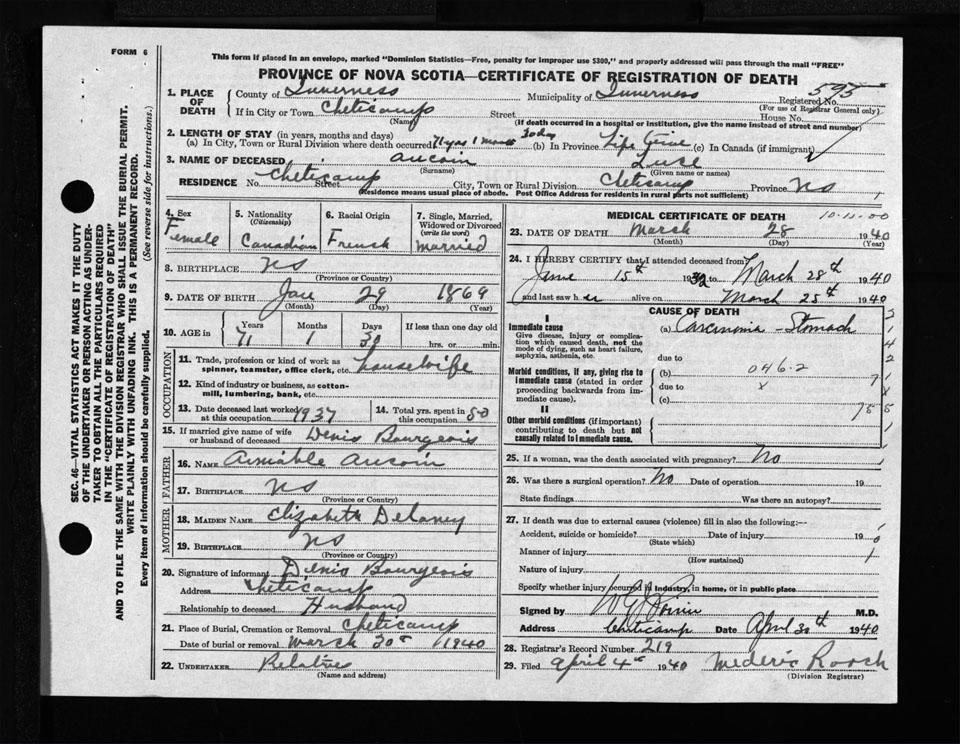 FORM 6
This form if placed in an envelope, marked "Dominion Statistics—Free, penalty for improper use $300," and properly addressed will pass through the mail "FREE"
PROVINCE OF NOVA SCOTIA—CERTIFICATE OF REGISTRATION OF DEATH
SEC. 46—VITAL STATISTICS ACT MAKES IT THE DUTY
OF THE UNDERTAKER OR PERSON ACTING AS UNDER-
TAKER TO OBTAIN ALL THE PARTICULARS REQUIRED
IN THE "CERTIFICATE OF REGISTRATION OF DEATH"
AND TO FILE THE SAME WITH THE DIVISION REGISTRAR WHO SHALL ISSUE THE BURIAL PERMIT.
WRITE PLAINLY WITH UNFADING INK. THIS IS A PERMANENT RECORD.
Every item of information should be carefully supplied. (See reverse side for instructions.)
1. PLACE OF DEATH
County of Inverness Municipality of Inverness Registered No. 595
(For use of Registrar General only)
If in City or Town Cheticamp Street House No.
(Name) (If death occurred in a hospital or institution, give the name instead of street and number)
2. LENGTH OF STAY (in years, months and days)
(a) In City, Town or Rural Division where death occurred 71 yrs 1 month 30 dy (b) In Province Life time (c) In Canada (if immigrant)
3. NAME OF DECEASED Aucoin Luse
(Surname) (Given name or names)
RESIDENCE No. Cheticamp Street City, Town or Rural Division Cheticamp Province NS
(Residence means usual place of abode. Post Office Address for residents in rural parts not sufficient)
4. Sex Female
5. Nationality (Citizenship) Canadian
6. Racial Origin French
7. Single, Married, Widowed or Divorced (write the word) Married
8. BIRTHPLACE NS
(Province or Country)
9. DATE OF BIRTH Jan 29 1869
(Month) (Day) (Year)
10. AGE in Years 71 Months 1 Days 30 If less than one day old
hrs. or min.
OCCUPATION
11. Trade, profession or kind of work as spinner, teamster, office clerk, etc. housewife
12. Kind of industry or business, as cotton-mill, lumbering, bank, etc.
13. Date deceased last worked at this occupation 1937
14. Total yrs. spent in 50
15. If married give name of wife or husband of deceased Denis Bourgeois
FATHER
16. NAME Aimable Aucoin
17. BIRTHPLACE NS
(Province or Country)
MOTHER
18. MAIDEN NAME Elizabeth Delaney
19. BIRTHPLACE NS
(Province or Country)
20. Signature of informant Denis Bourgeois
Address Cheticamp
Relationship to deceased Husband
21. Place of Burial, Cremation or Removal Cheticamp
Date of burial or removal March 30 1940
22. UNDERTAKER Relatives
(Name and address)
MEDICAL CERTIFICATE OF DEATH
23. DATE OF DEATH March 28 1940
(Month) (Day) (Year)
24. I HEREBY CERTIFY that I attended deceased from
June 15th 1932 to March 28th 1940
and last saw her alive on March 25th 1940
CAUSE OF DEATH
I
Immediate cause
Give disease, injury or complication which caused death, not the mode of dying, such as heart failure, asphyxia, asthenia, etc.
(a) Carcinoma - Stomach
due to
Morbid conditions, if any, giving rise to immediate cause (stated in order proceeding backwards from immediate cause).
(b) 046.2
due to x
(c)
II
Other morbid conditions (if important) contributing to death but not causally related to immediate cause.
25. If a woman, was the death associated with pregnancy? No
26. Was there a surgical operation? No Date of operation 19
State findings Was there an autopsy?
27. If death was due to external causes (violence) fill in also the following:—
Accident, suicide or homicide? Date of injury 19
(State which)
Manner of injury
(How sustained)
Nature of injury
Specify whether injury occurred in industry, in home, or in public place
Signed by M.D.
Address Cheticamp Date April 30th 1940
28. Registrar's Record Number 219
29. Filed April 4 1940 Mederic Roach
(Division Registrar)